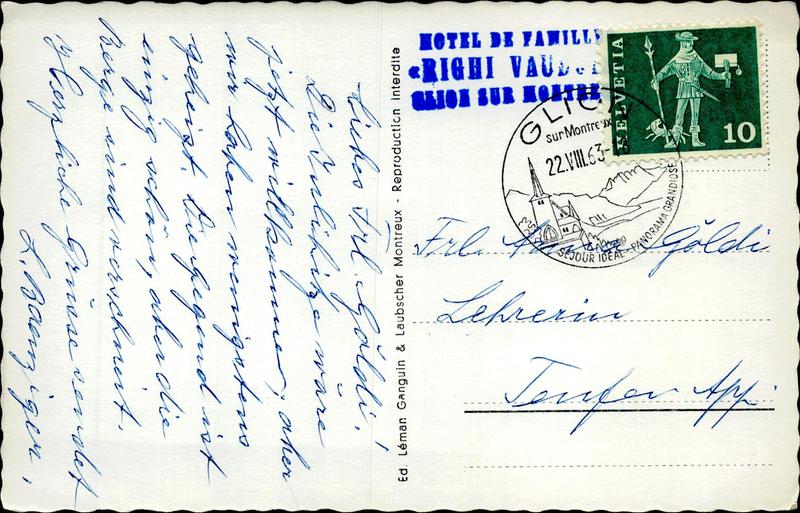 Liebes Frl. Göldi!
Die Zulihitze wäre
jetzt willkommen, aber
wir haben wenigstens
geheizt. Die Gegend ist
einzig schön, aber die
Berge sind verschneit.
Herzliche Grüsse sendet
L. Baenziger.
Ed. Léman Ganguin & Laubscher Montreux - Reproduction interdite
HOTEL DE FAMILLE
«RIGHI VAUDOI
GLION SUR MONTRE
HELVETIA
10
GLION
sur Montreux
22.VIII.63-18
SÉJOUR IDÉAL-PANORAMA GRANDIOSE
Frl. Göldi
Lehrerin
Teufen App.